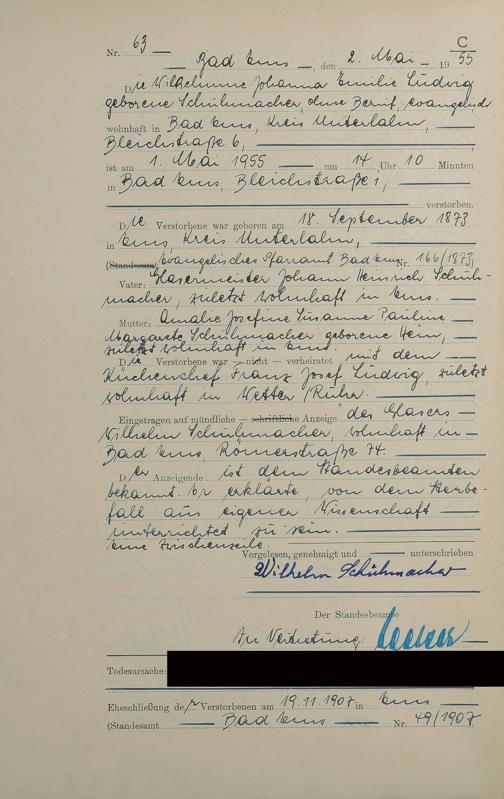 C
Nr. 63
Bad Ems, den 2. Mai 1955
Die Wilhelmine Johanna Emilie Ludwig
geborene Schuhmacher, ohne Beruf, evangelisch
wohnhaft in Bad Ems, Kreis Unterlahn,
Bleichstraße 6,
ist am 1. Mai 1955 um 14 Uhr 10 Minuten
in Bad Ems, Bleichstraße 1,
verstorben.
Die Verstorbene war geboren am 18. September 1873
in Ems, Kreis Unterlahn,
(Standesamt evangelisches Pfarramt Bad Ems Nr. 166/1873)
Vater: Glasermeister Johann Heinrich Schuh-
macher, zuletzt wohnhaft in Ems.
Mutter: Amalie Josefine Susanne Pauline
Margarete Schuhmacher geborene Hein,
zuletzt wohnhaft in Ems
Die Verstorbene war — nicht — verheiratet mit dem
Küchenchef Franz Josef Ludwig, zuletzt
wohnhaft in Wetter/Ruhr.
Eingetragen auf mündliche — schriftliche Anzeige des Glasers
Wilhelm Schuhmacher, wohnhaft in
Bad Ems, Römerstraße 74.
Der Anzeigende ist dem Standesbeamten
bekannt. Er erklärte, von dem Sterbe-
fall aus eigener Wissenschaft
unterrichtet zu sein.
Eine Zwischenzeile
Vorgelesen, genehmigt und unterschrieben
Wilhelm Schuhmacher
Der Standesbeamte
In Vertretung:
Todesursache:
Eheschließung der Verstorbenen am 19.11.1907 in Ems
(Standesamt Bad Ems Nr. 49/1907